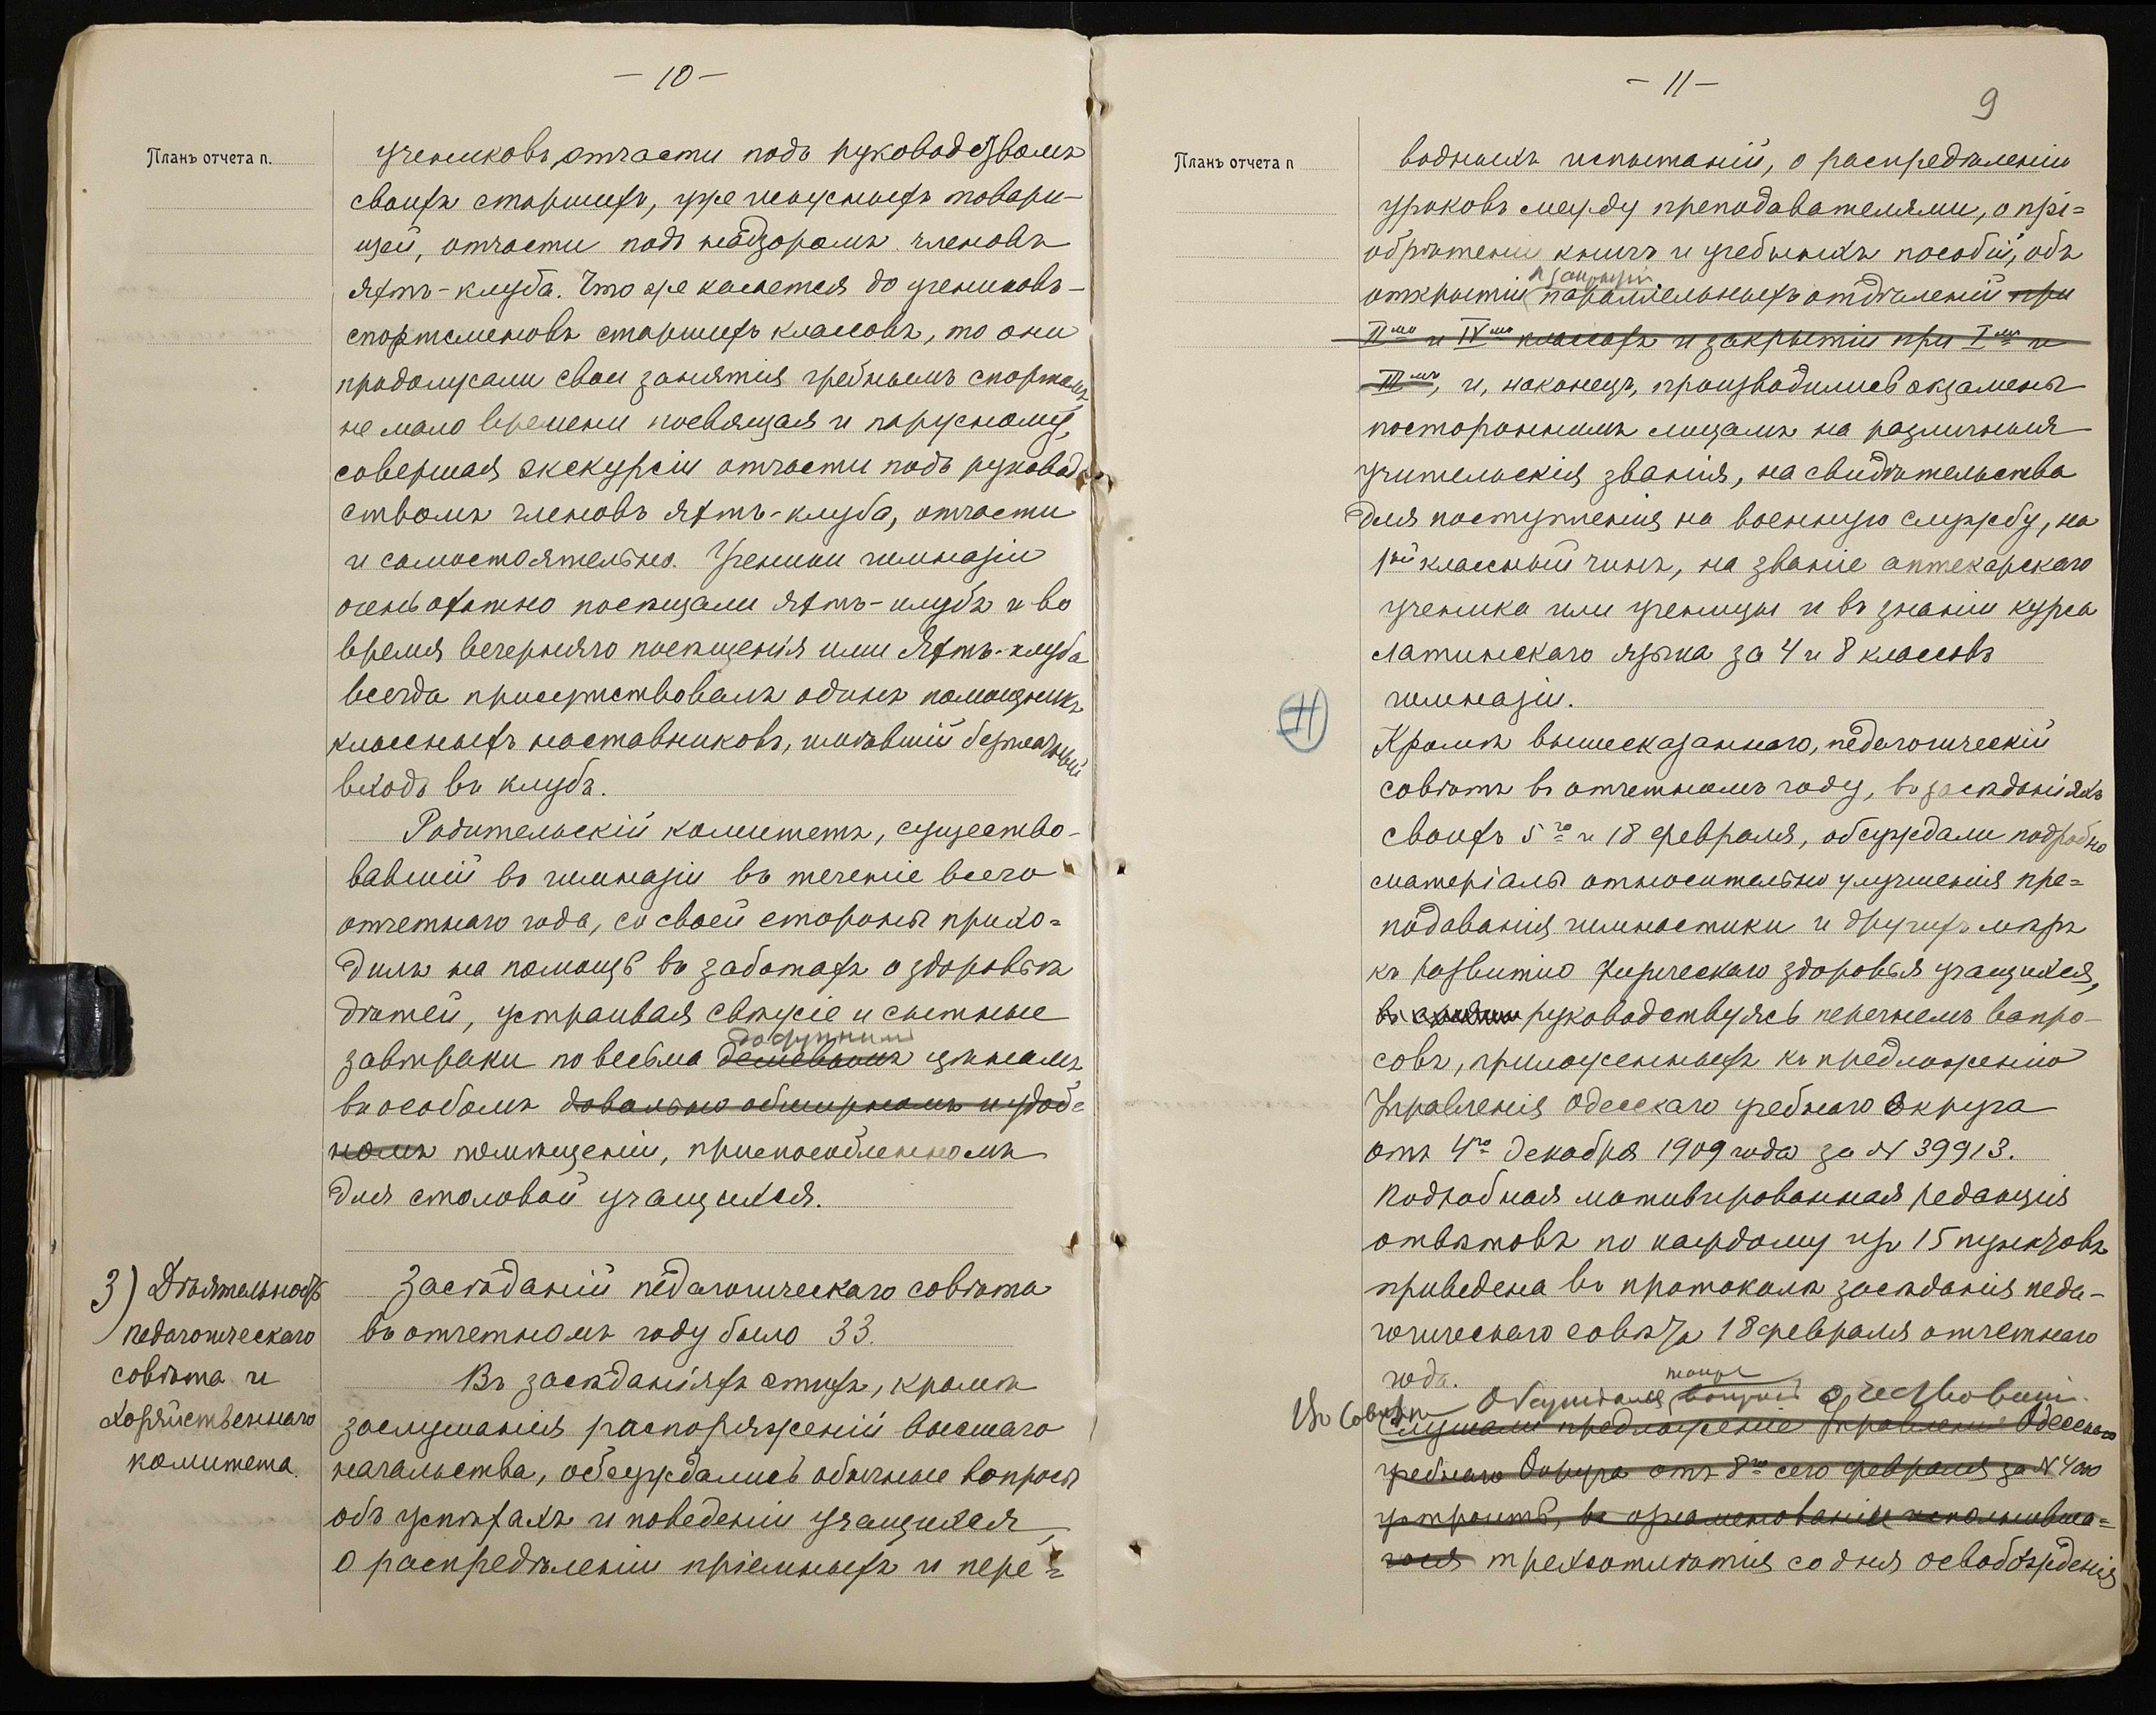 — 10 —
Планъ отчета п.
учениковъ, отчасти подъ руководствомъ
своихъ старшихъ, уже искусныхъ товари-
щей, отчасти подъ надзоромъ членовъ
яхтъ-клуба. Что же касается до учениковъ-
спортсменовъ старшихъ классовъ, то они
продолжали свои занятія гребнымъ спортомъ,
не мало времени посвящая и парусному,
совершая экскурсіи отчасти подъ руковод-
ствомъ членовъ яхтъ-клуба, отчасти
и самостоятельно. Ученики гимназіи
очень охотно посѣщали яхтъ-клубъ и во
время вечерняго посѣщенія ими Яхтъ-клуба
всегда присутствовалъ одинъ помощникъ
классныхъ наставниковъ, имѣвшій безплатный
входъ въ клубъ.
Родительскій комитетъ, существо-
вавшій въ гимназіи въ теченіе всего
отчетнаго года, со своей стороны прихо=
дилъ на помощь въ заботахъ о здоровьѣ
дѣтей, устраивая свѣжіе и сытные
доступнымъ
завтраки по весьма дешевымъ цѣнамъ
въ особомъ довольно обширномъ и удоб=
номъ помѣщеніи, приспособленномъ
для столовой учащихся.
3) Дѣятельность
педагогическаго
совѣта и
хозяйственнаго
комитета.
Засѣданій педагогическаго совѣта
въ отчетномъ году было 33.
Въ засѣданіяхъ этихъ, кромѣ
заслушанія распоряженій высшаго
начальства, обсуждались обычные вопросы
объ успѣхахъ и поведеніи учащихся,
о распредѣленіи пріемныхъ и пере=
— 11 —
9
Планъ отчета п
водныхъ испытаній, о распредѣленіи
уроковъ между преподавателями, о прі=
обрѣтеніи книгъ и учебныхъ пособій, объ
и закрытіи
открытіи параллельныхъ отдѣленій при
II мъ и IV мъ классахъ и закрытіи при I мъ и
III мъ, и, наконецъ, производились экзамены
постороннимъ лицамъ на различныя
учительскія званія, на свидѣтельства
для поступленія на военную службу, на
1ый классный чинъ, на званіе аптекарскаго
ученика или ученицы и въ знаніи курса
латинскаго языка за 4 и 8 классовъ
гимназіи.
Кромѣ вышесказаннаго, педагогическій
совѣтъ въ отчетномъ году, въ засѣданіяхъ
своихъ 5го и 18 февраля, обсуждали подробно
матеріалы относительно улучшенія пре=
подаванія гимнастики и другихъ мѣръ
къ развитію физическаго здоровья учащихся,
руководствуясь перечнемъ вопро-
совъ, приложенныхъ къ предложенію
Управленія Одесскаго учебнаго Округа
отъ 4го Декабря 1909 года за № 39913.
Подробная мотивированная редакція
отвѣтовъ по каждому изъ 15 пунктовъ
приведена въ протоколѣ засѣданія педа-
гогическаго совѣта 18 февраля отчетнаго
года.
также
Въ Совѣтѣ обсуждался вопросъ о чествованіи
Слушали предложеніе Управленія Одесскаго
учебнаго Округа отъ 8го сего февраля за №
устроить, въ ознаменованіе исполнивша=
гося трехсотлѣтія со дня освобожденія